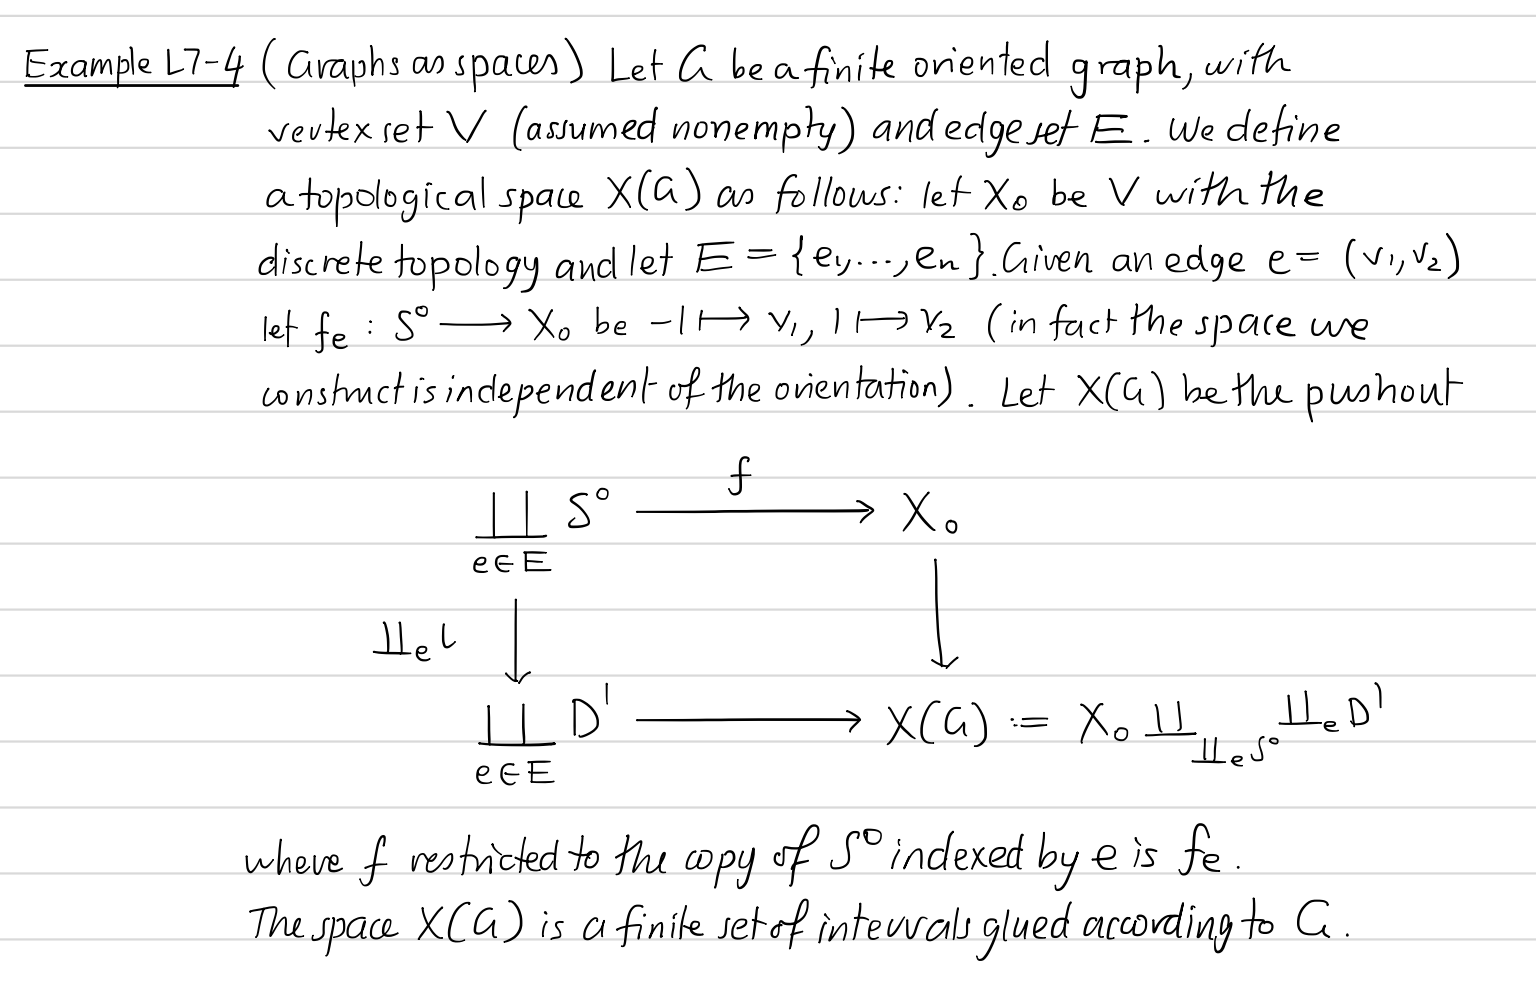 Example L7-4 (Graphs as spaces) Let G be a finite oriented graph, with
vertex set V (assumed nonempty) and edge set E. We define
a topological space X(G) as follows: let X₀ be V with the
discrete topology and let E = {e₁,...,eₙ}. Given an edge e = (v₁,v₂)
let fₑ : S⁰ ⟶ X₀ be -1 ⟼ v₁, 1 ⟼ v₂ (in fact the space we
construct is independent of the orientation). Let X(G) be the pushout
f
∐ S⁰ ⟶ X₀
e∈E
∐ₑ ι
∐ D¹ ⟶ X(G) := X₀ ∐_{∐ₑ S⁰} ∐ₑ D¹
e∈E
where f restricted to the copy of S⁰ indexed by e is fₑ.
The space X(G) is a finite set of intervals glued according to G.